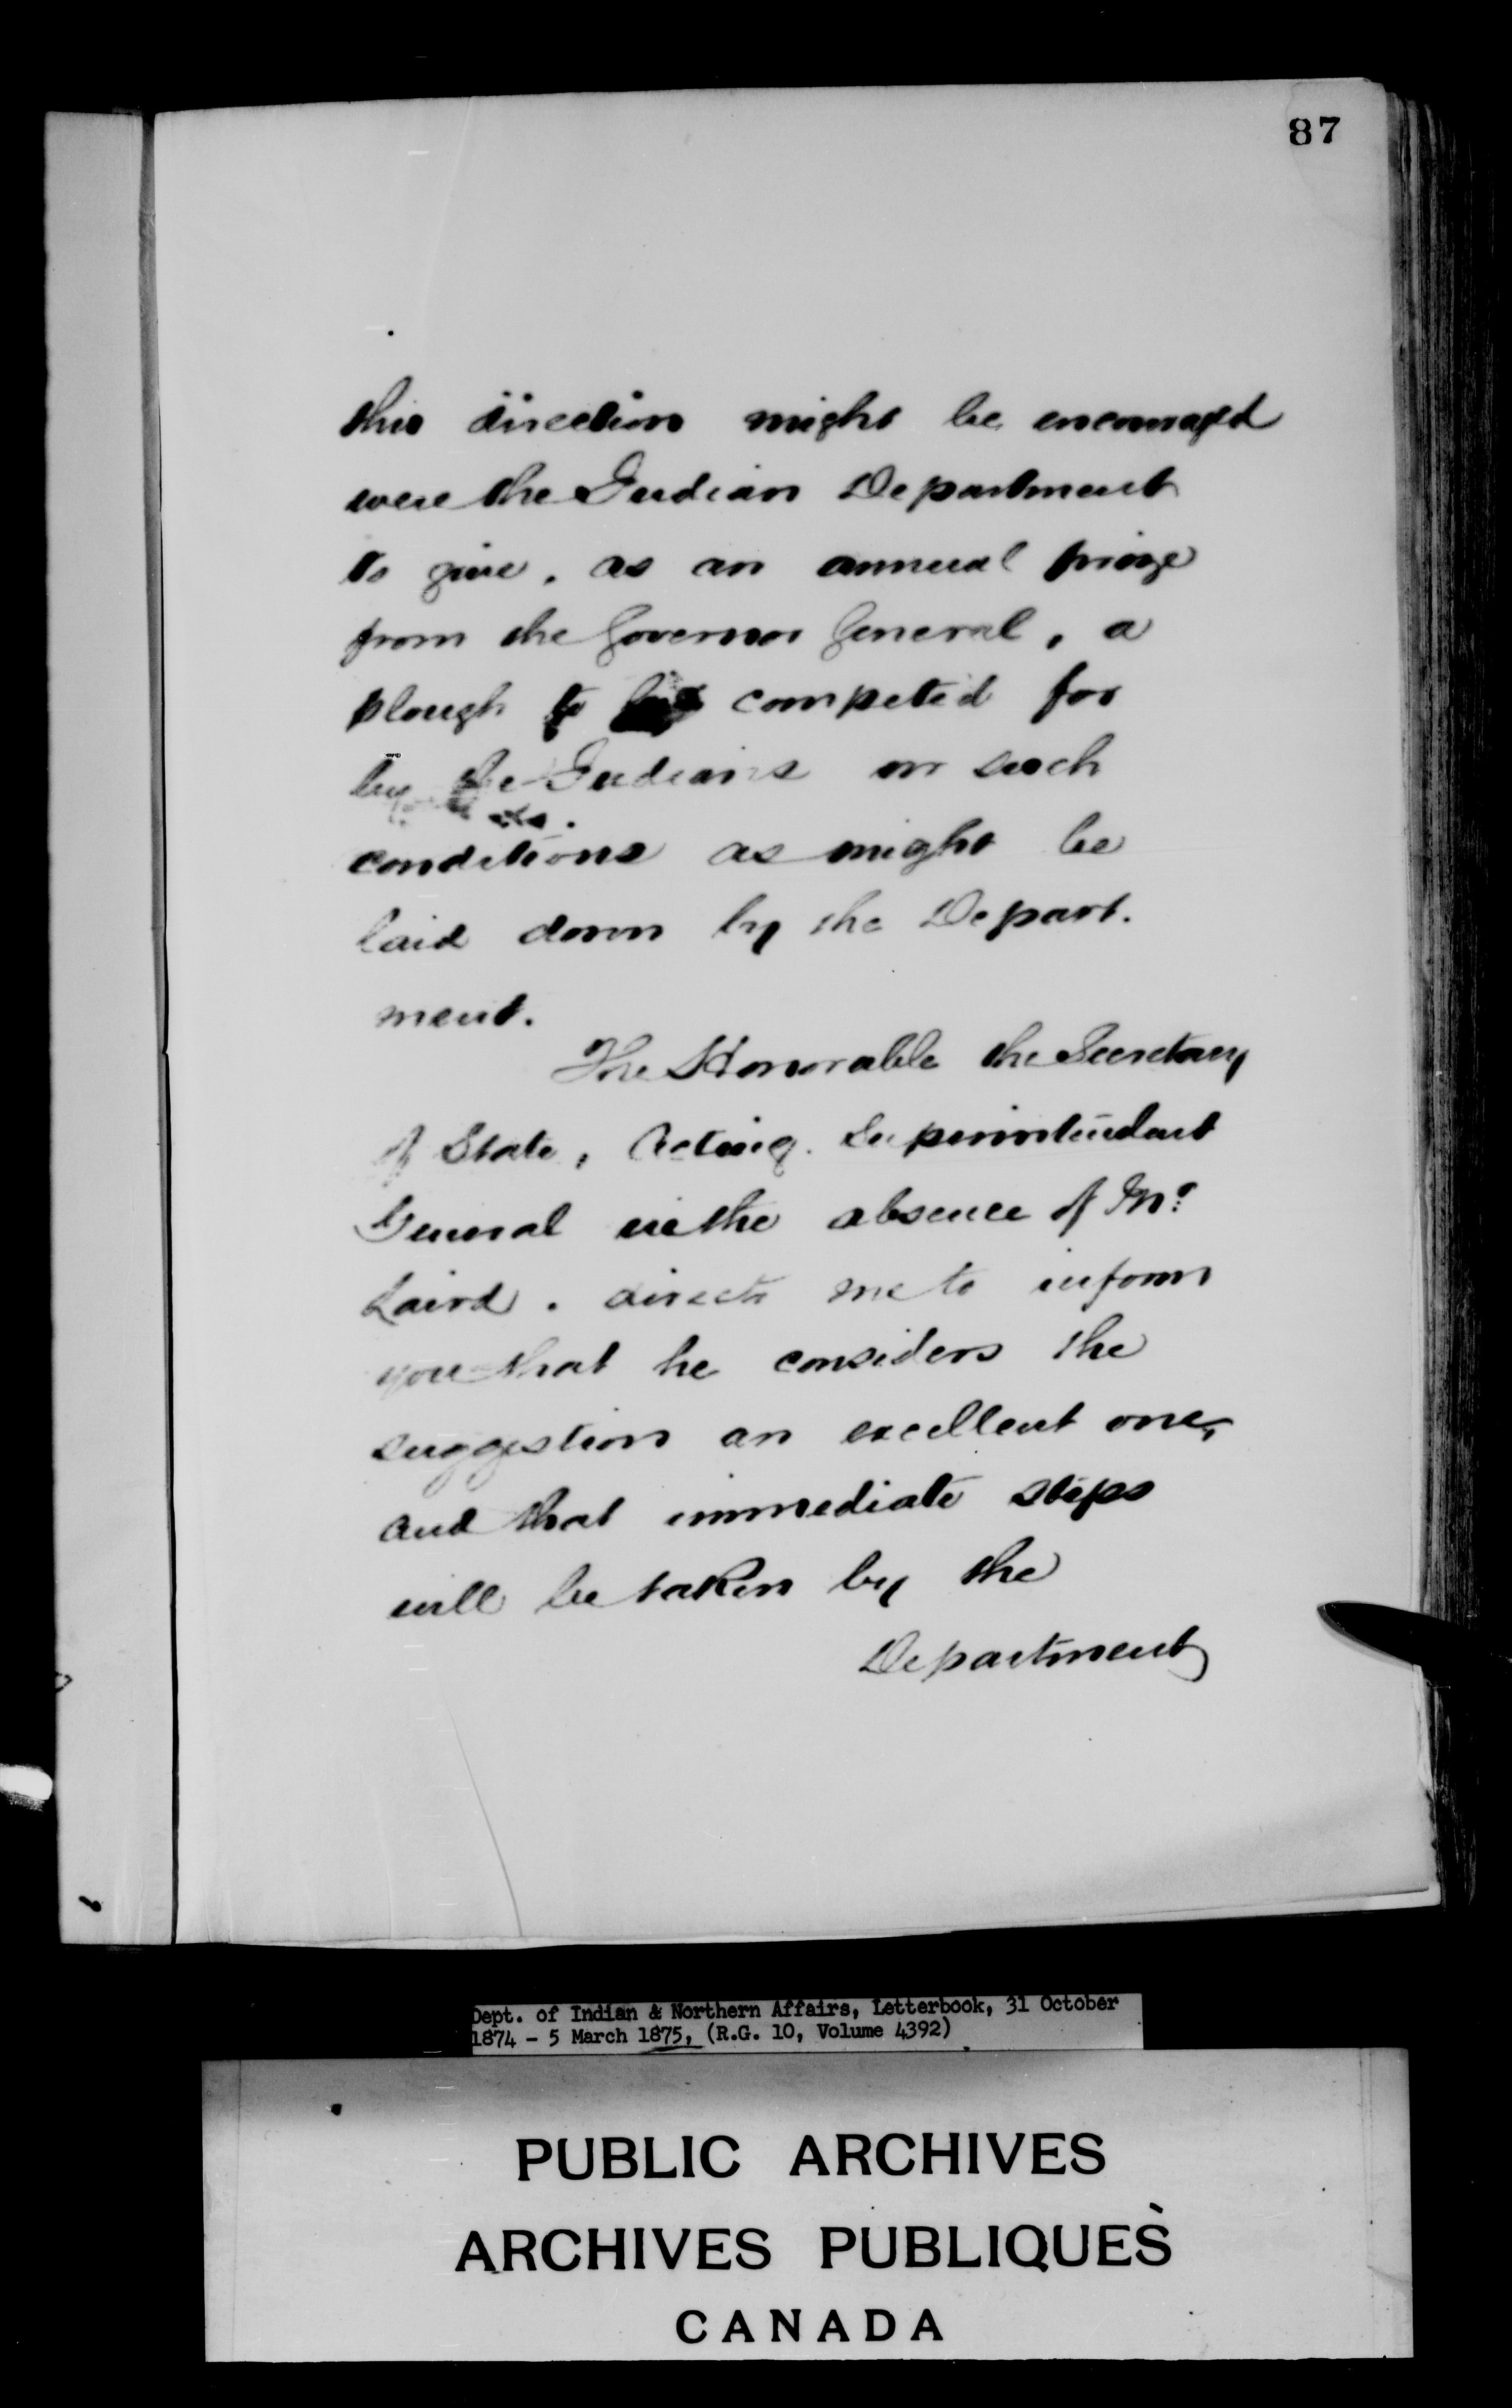 87
this direction might be encouraged
were the Indian Department
to give, as an annual prize
from the Governor General, a
plough to be competed for
by the Indians on such
conditions as might be
laid down by the Depart.
ment.
The Honorable the Secretary
of State, Acting Superintendent
General in the absence of Mr.
Laird. directs me to inform
you that he considers the
suggestion an excellent one,
and that immediate steps
will be taken by the
Department
Dept. of Indian & Northern Affairs, Letterbook, 31 October
1874 - 5 March 1875, (R.G. 10, Volume 4392)
PUBLIC ARCHIVES
ARCHIVES PUBLIQUES
CANADA